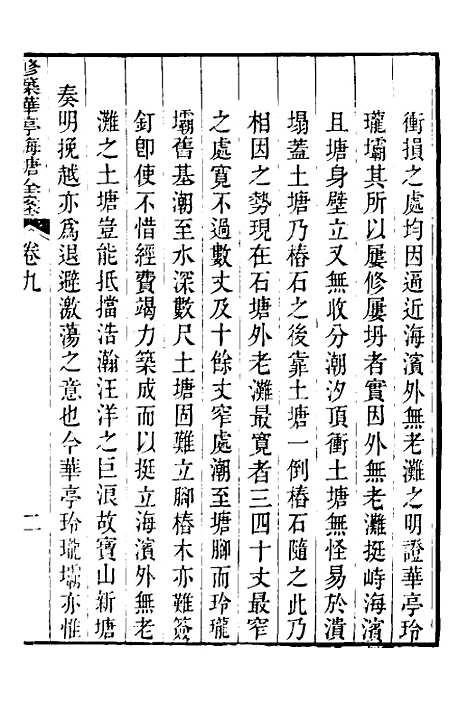 衝損之處均因逼近海濱外無老灘之明證華亭玲
瓏壩其所以屢修屢坍者實因外無老灘挺峙海濱
且塘身壁立又無收分潮汐頂衝土塘無怪易於潰
塌蓋土塘乃樁石之後靠土塘一倒樁石隨之此乃
相因之勢現在石塘外老灘最寬者三四十丈最窄
之處寬不過數丈及十餘丈窄處潮至塘腳而玲瓏
壩舊基潮至水深數尺土塘固難立腳樁木亦難簽
釘卽使不惜經費竭力築成而以挺立海濱外無老
灘之土塘豈能抵擋浩瀚汪洋之巨浪故寶山新塘
奏明挽越亦爲退避激蕩之意也今華亭玲瓏壩亦惟
修築華亭海塘全案 卷九 二